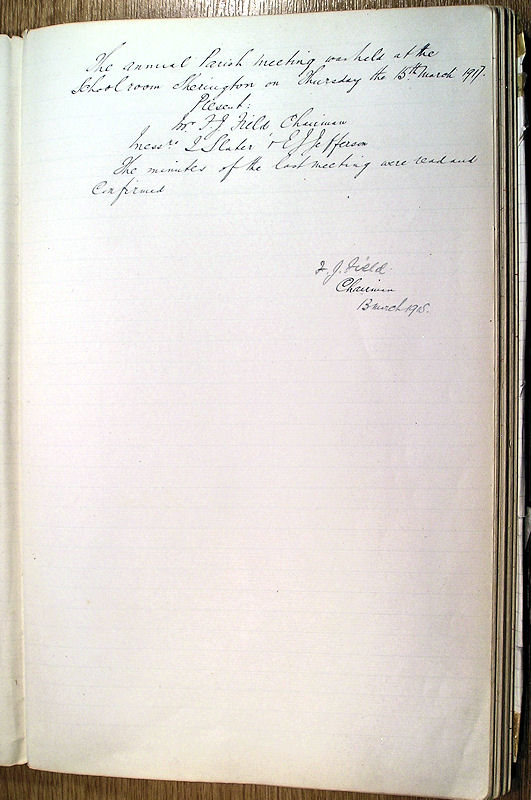 The annual Parish Meeting was held at the
School room Sherington on Thursday the 15th March 1917.
Present:
Mr F J Field, Chairman
Messrs J Slater & E J Jefferson
The minutes of the last meeting were read and
Confirmed
F. J. Field.
Chairman
13 March 1918.